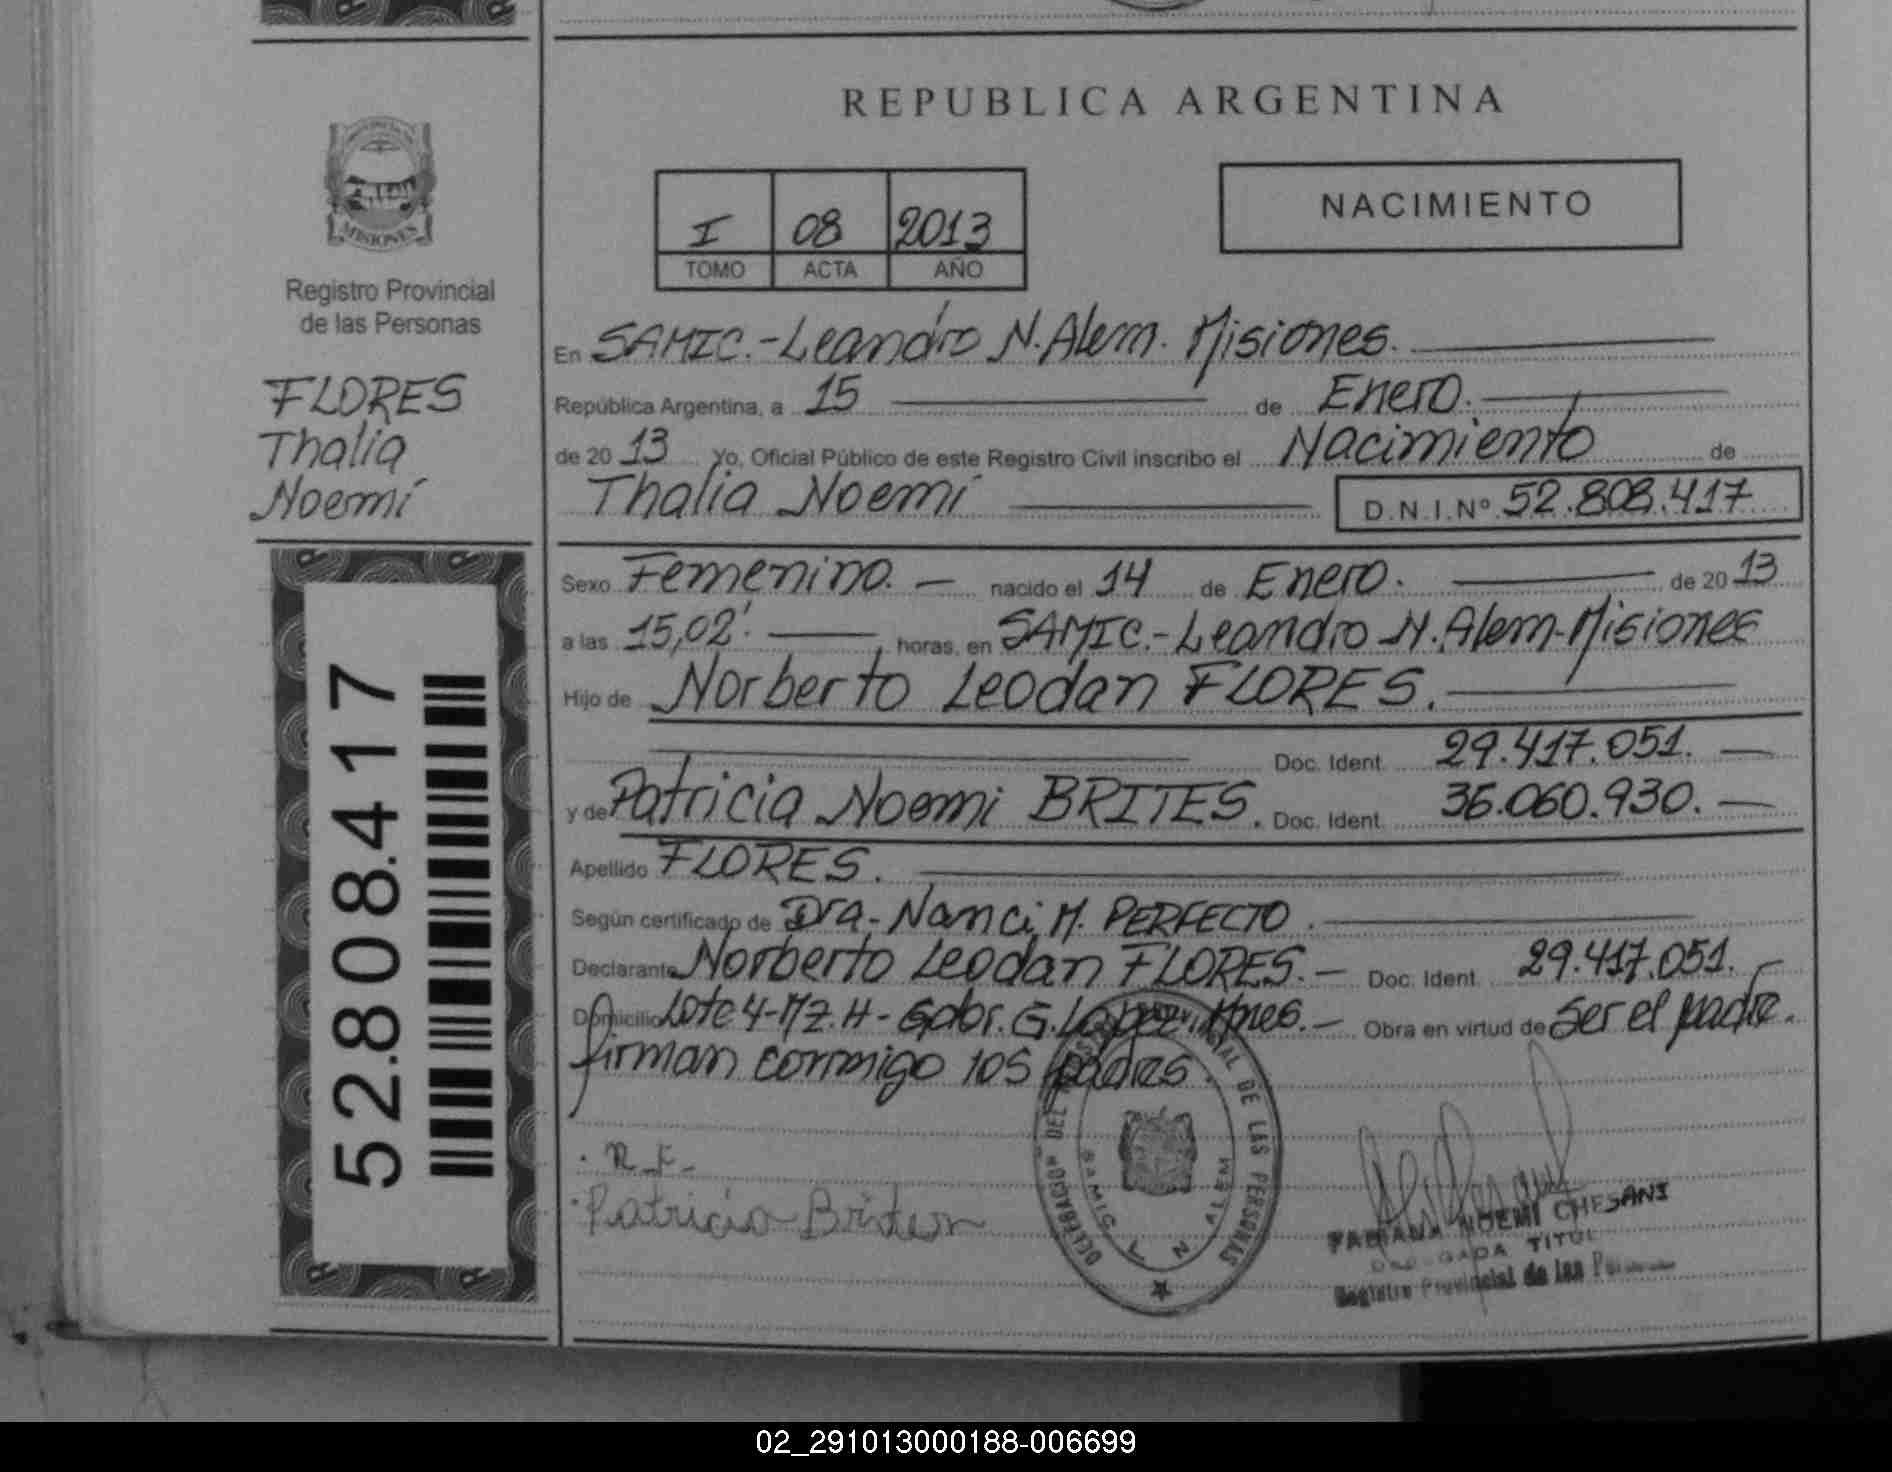 REPUBLICA ARGENTINA
MISIONES
Registro Provincial
de las Personas
FLORES
Thalia
Noemí
52.808.417
I 08 2013
TOMO ACTA AÑO
NACIMIENTO
En SAMIC.-Leandro N. Alem. Misiones.
República Argentina, a 15 de Enero.
de 20 13 Yo, Oficial Público de este Registro Civil inscribo el Nacimiento de
Thalia Noemí D.N.I.Nº 52.808.417
Sexo Femenino. nacido el 14 de Enero. de 20 13
a las 15,02'. horas, en SAMIC.-Leandro N. Alem-Misiones
Hijo de Norberto Leodan FLORES.
Doc. Ident. 29.417.051.
y de Patricia Noemi BRITES. Doc. Ident. 36.060.930.
Apellido FLORES.
Según certificado de Dra. Nanci M. PERFECTO.
Declarante Norberto Leodan FLORES. Doc. Ident. 29.417.051.
Domicilio Lote 4-Mz. H- Gdor. G. Lopez. Mnes. Obra en virtud de ser el padre.
firman conmigo los padres.
N.F.
Patricia Brites
DELEGACION DEL REGISTRO PROVINCIAL DE LAS PERSONAS
SAMIC A N ALEM
FABIANA NOEMI CHESANI
DELEGADA TITUL
Registro Provincial de las
02_291013000188-006699